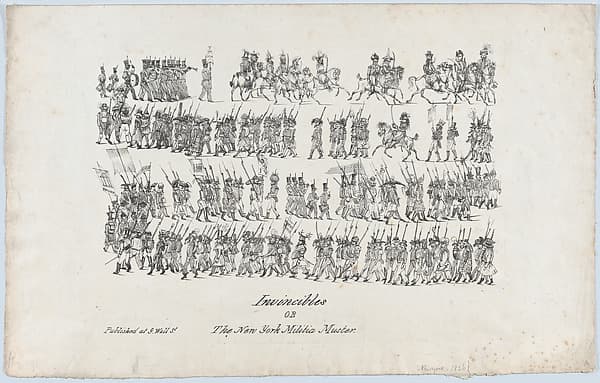 Invincibles
OR
The New York Militia Muster.
Published at 9. Wall St